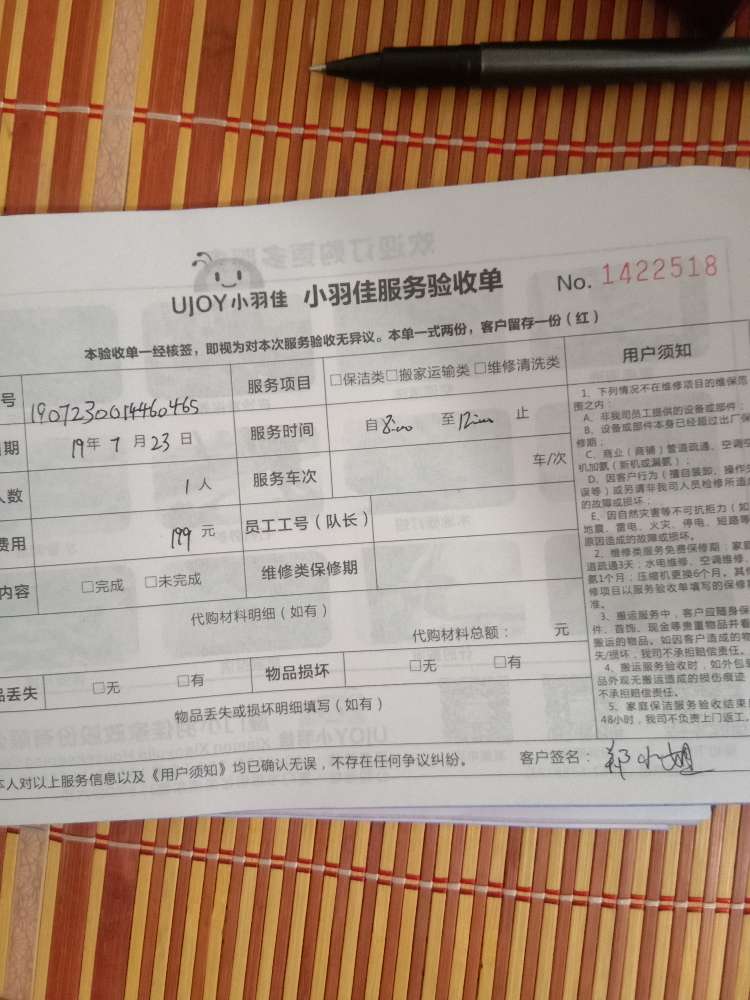 UJOY小羽佳 小羽佳服务验收单 No. 1422518
本验收单一经核签，即视为对本次服务验收无异议。本单一式两份，客户留存一份（红）
号 1907230014460465 服务项目 □保洁类□搬家运输类□维修清洗类
期 19年 7月 23日 服务时间 自8:00 至12:00 止
人数 1人 服务车次 车/次
费用 199元 员工工号（队长）
内容 □完成 □未完成 维修类保修期
代购材料明细（如有）
代购材料总额： 元
品丢失 □无 □有 物品损坏 □无 □有
物品丢失或损坏明细填写（如有）
本人对以上服务信息以及《用户须知》均已确认无误，不存在任何争议纠纷。 客户签名：
用户须知
1、下列情况不在维修项目的维保范
围之内：
A、非我司员工提供的设备或部件；
B、设备或部件本身已经超过出厂保
修期；
C、商业（商铺）管道疏通、空调空
机加氨（新机或漏氨）；
D、因客户行为（擅自装卸、操作失
误等）或另请非我司人员检修所造成
的故障或损坏；
E、因自然灾害等不可抗拒力（如
地震、雷电、火灾、停电、短路等
原因造成的故障或损坏。
2、维修类服务免费保修期：家庭
道疏通3天；水电维修、空调维修、
氨1个月；压缩机更换6个月。其他
修项目以服务验收单填写的保修期
准。
3、搬运服务中，客户应随身保
件、首饰、现金等贵重物品并看
搬运的物品。如因客户造成的物
失/损坏，我司不承担赔偿责任。
4、搬运服务验收时，如外包装
品外观无搬运造成的损伤痕迹
不承担赔偿责任。
5、家庭保洁服务验收结束
48小时，我司不负责上门返工。